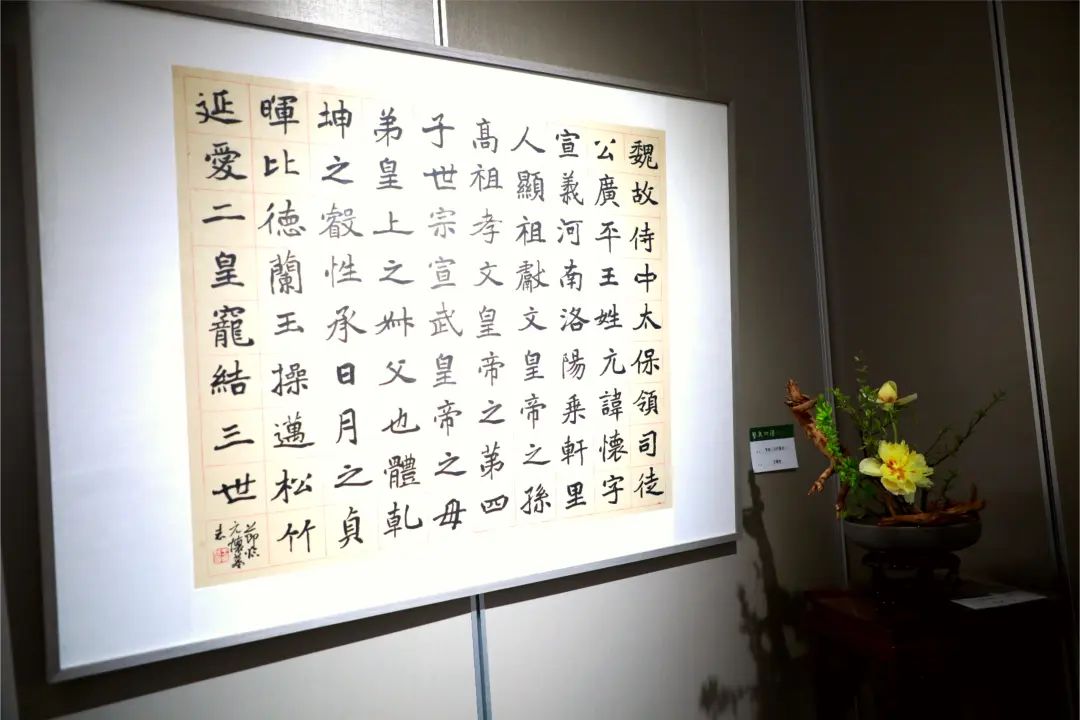 魏故侍中太保領司徒
公廣平王姓元諱懷字
宣義河南洛陽乘軒里
人顯祖獻文皇帝之孫
高祖孝文皇帝之第四
子世宗宣武皇帝之母
弟皇上之叔父也體乾
坤之叡性承日月之貞
暉比德蘭玉操邁松竹
延愛二皇寵結三世
節臨
元懷墓
志